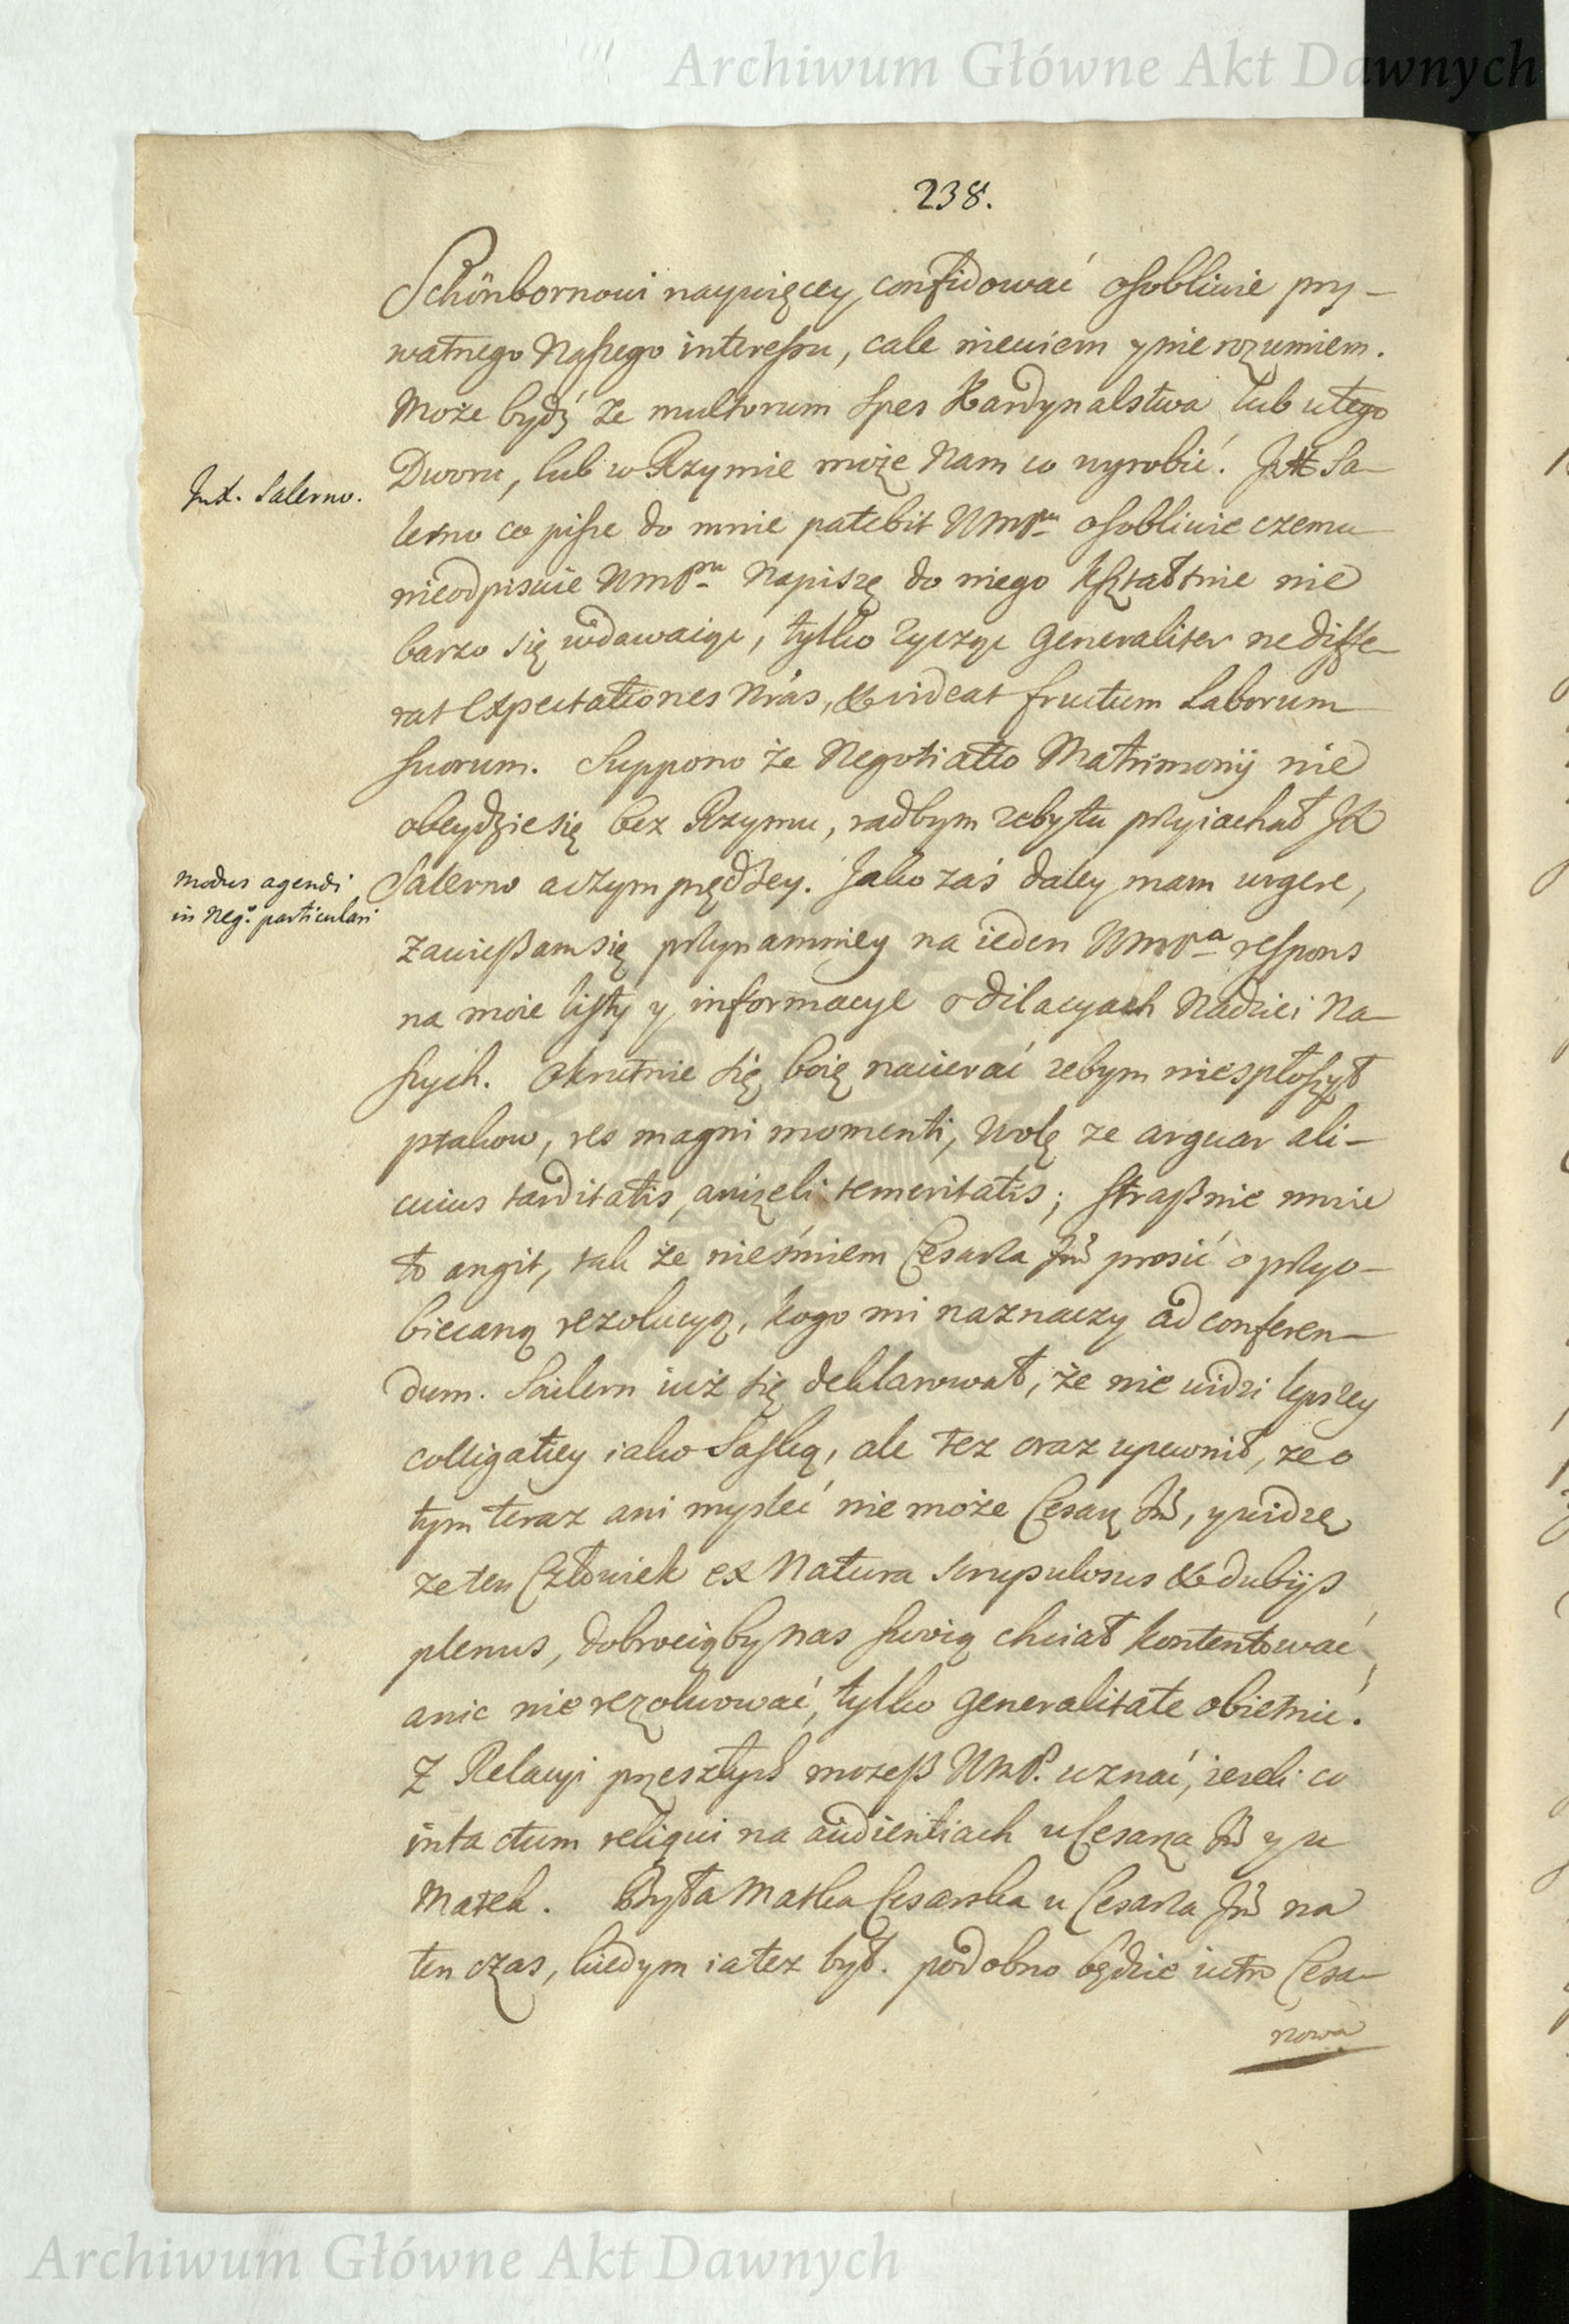 Archiwum Główne Akt Dawnych
238.
Schönbornowi naywięcey confidować osobliwie pry-
watnego Naszego interessu, cale niewiem y nie rozumiem.
Może bydź że multorum spes Kardynalstwa lub u tego
Dworu, lub w Rzymie może Nam co wyrobić. JX Sa-
Ind. Salerno.
lerno co pisze do mnie patebit WmPnu osobliwie czemu
nieodpisuie WmPnu Napiszę do niego kształtnie nie
barzo się wdawaiąc, tylko życząc generaliter ne diffe-
rat Expectationes Nras, & videat fructum Laborum
suorum. Suppono że Negotiatio Matrimonij nie
obeydzie się bez Rzymu, radbym żeby tu przyiachał JX
Salerno a czym prędzey. Jako zaś daley mam urgere,
modus agendi
in Neg.o particulari
zawieszam się przynamniey na ieden WmPa respons
na moie listy y informacye o dilacyach Nadziei Na-
szych. Okrutnie się boię nacierać żebym niespłoszył
ptakow, res magni momenti, Wolę że arguar ali-
cuius tarditatis, aniżeli temeritatis; strasznie mnie
to angit, tak że nieśmiem Cesarza Jmć prosić o przyo-
biecaną rezolucyą, kogo mi naznaczy ad conferen-
dum. Sailern iuż się deklarował, że nie widzi lepszey
colligatiey iako Saską, ale też oraz upewnił, że o
tym teraz ani myśleć nie może Cesarz Jmć, y widzę
że ten Człowiek ex Natura scrupulosus & dubijs
plenus, dobrocią by nas swoią chciał kontentować,
a nic nie rezolwować, tylko generalitate obietnic.
Z Relacyi przeszłych możesz WmP. uznać, ieżeli co
intactum reliqui na audientiach u Cesarza Jmć y u
Matek. Była Matka Cesarska u Cesarza Jmć na
ten czas, kiedym ia też był. podobno będzie iutro Cesa-
rzowa
Archiwum Główne Akt Dawnych